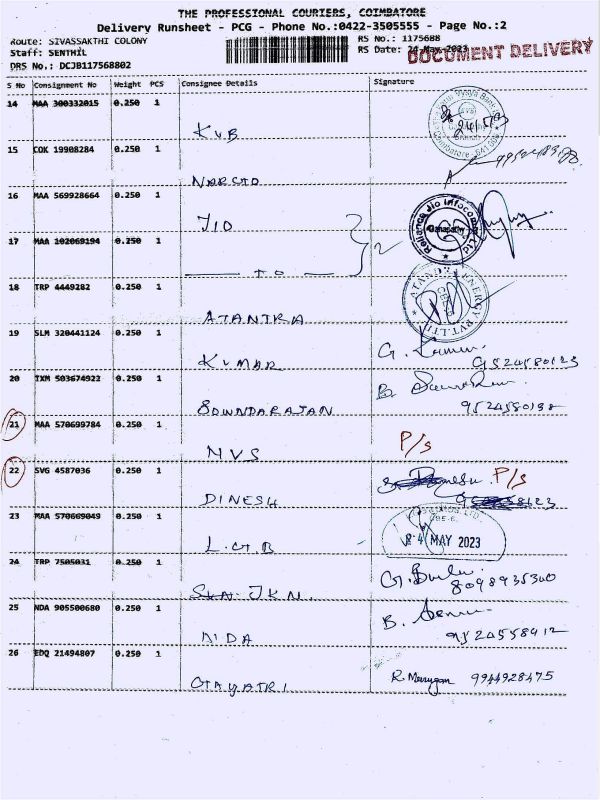 THE PROFESSIONAL COURIERS, COIMBATORE
Delivery Runsheet - PCG - Phone No.:0422-3505555 - Page No.:2
Route: SIVASSAKTHI COLONY
RS No.: 1175688
Staff: SENTHIL
RS Date: 24-May-2023
DOCUMENT DELIVERY
DRS No.: DCJB117568802
S No Consignment No Weight PCS Consignee Details Signature
14 MAA 300332015 0.250 1
KVB
15 COK 19908284 0.250 1
16 MAA 569928664 0.250 1
JIO
Reliance Jio Infocomm Ltd
Ganapathy
17 MAA 102069194 0.250 1
2
18 TRP 4449282 0.250 1
ATANTRA
19 SLM 320441124 0.250 1
KUMAR
G. Kumar
9524580123
20 TXM 503674922 0.250 1
SOWNDARAJAN
9524580198
21 MAA 570699784 0.250 1
NVS
P/s
22 SVG 4587036 0.250 1
DINESH
P/s
23 MAA 570669049 0.250 1
L.G.B
24 MAY 2023
24 TRP 7505031 0.250 1
8098935300
25 NDA 905500680 0.250 1
9524558912
26 EDQ 21494807 0.250 1
GAYATRI
R. Murugan 9944928475